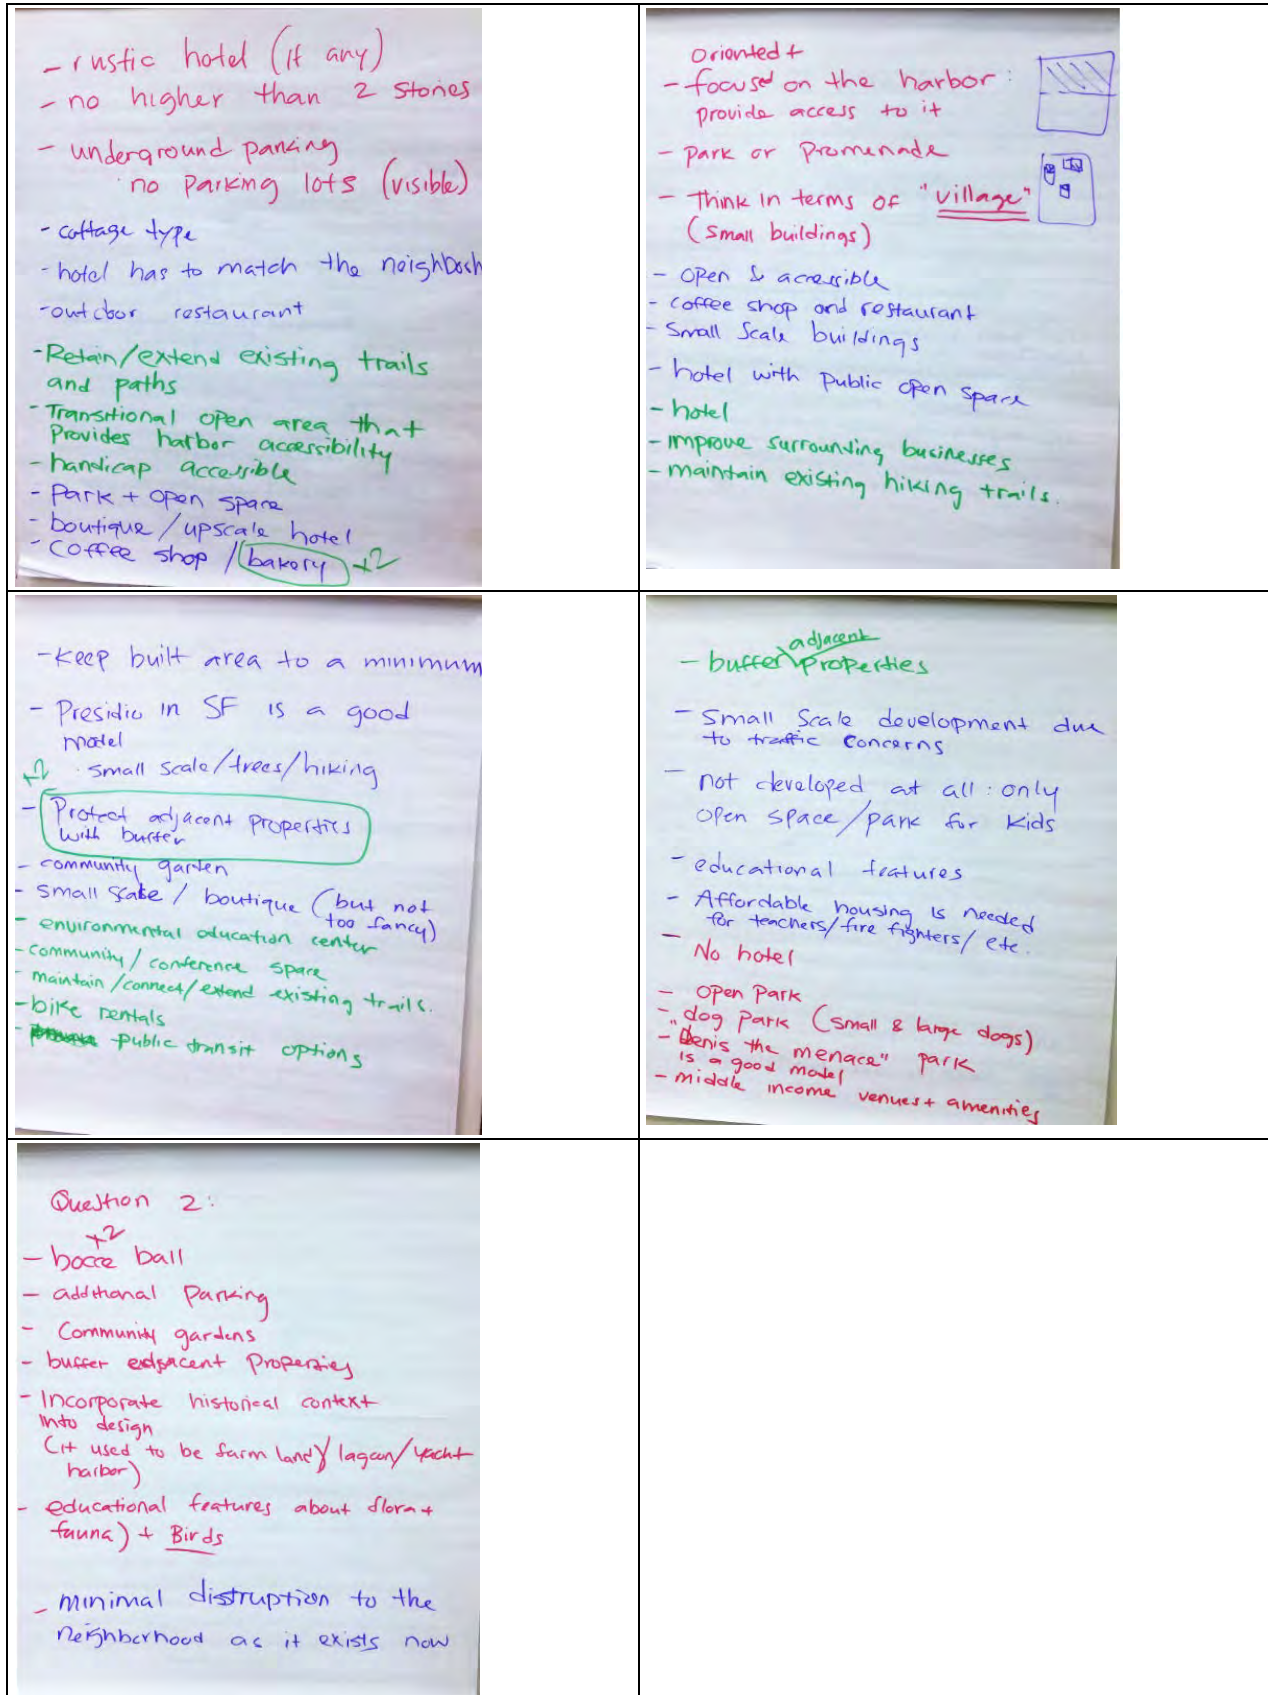 - rustic hotel (if any)
- no higher than 2 stories
- underground parking
· no parking lots (visible)
- cottage type
- hotel has to match the neighborh
- outdoor restaurant
- Retain/extend existing trails
and paths
- Transitional open area that
Provides harbor accessibility
- handicap accessible
- Park + open space
- boutique / upscale hotel
- coffee shop / bakery +2
oriented +
- focused on the harbor:
provide access to it
- park or promenade
- Think in terms of "village"
(small buildings)
- open & accessible
- coffee shop and restaurant
- Small scale buildings
- hotel with public open space
- hotel
- improve surrounding businesses
- maintain existing hiking trails.
- Keep built area to a minimum
- Presidio in SF is a good
model
· small scale/trees/hiking
+2
- Protect adjacent properties
with buffer
- community garden
- small scale / boutique (but not
too fancy)
- environmental education center
- community / conference space
- maintain /connect/extend existing trails.
- bike rentals
- public transit options
adjacent
- buffer properties
- Small Scale development due
to traffic concerns
- not developed at all: only
open space/park for kids
- educational features
- Affordable housing is needed
for teachers/fire fighters/ etc.
- No hotel
- open park
- dog park (small & large dogs)
- "Denis the menace" park
is a good model
- middle income venues + amenities
Question 2:
+2
- bocce ball
- additional parking
- Community gardens
- buffer edjacent properties
- Incorporate historical context
into design
(it used to be farm land/ lagoon/ yacht
harbor)
- educational features about flora +
fauna) + Birds
- minimal distruption to the
neighborhood as it exists now